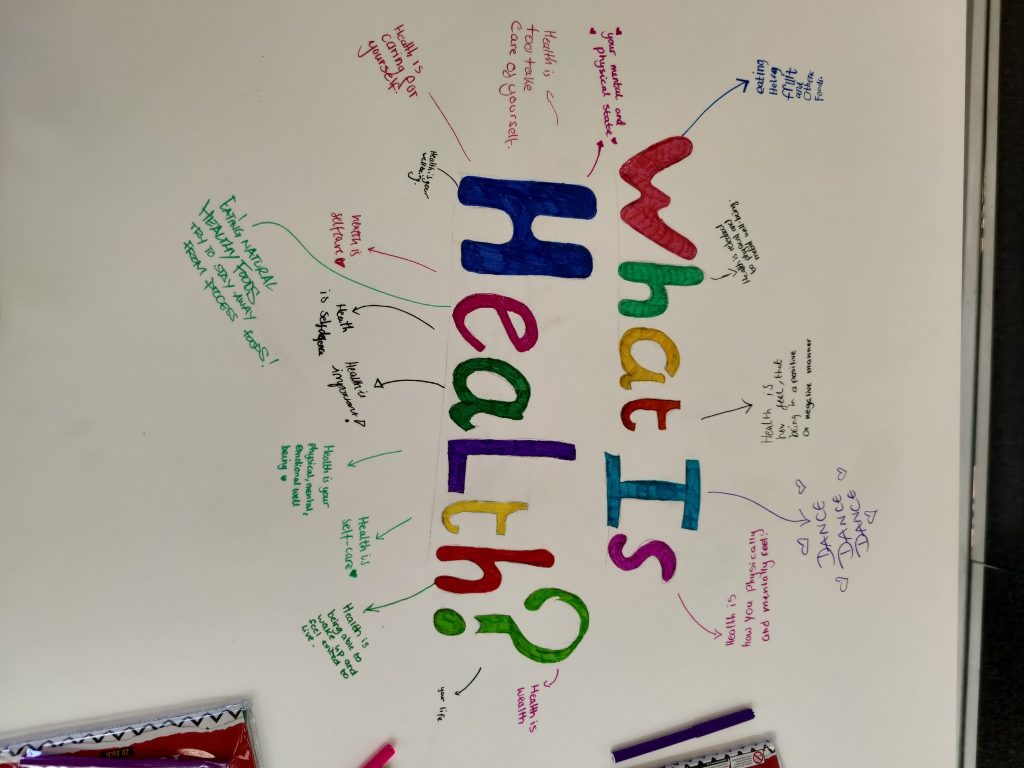 eating
fruit
and
Other
Foods.
Health is related
to physical and
mental well-being.
Health is
how feel, that
being in a positive
or negative manner
DANCE
DANCE
DANCE
your mental and
physical state
What Is
Health is
how you physically
and mentally feel!
Health is
too take
care of yourself.
Health?
Health is
caring for
yourself
Health is your
Health is
wealth
your life
health is
selfcare
Health
is
Health is
important!
Health is your
physical, mental,
emotional well
being
Health is
self-care
Health is
being able to
wake up and
feel excited to
live.
EATING NATURAL
HEALTHY FOODS
TRY TO STAY AWAY
FROM PROCESS FOODS!